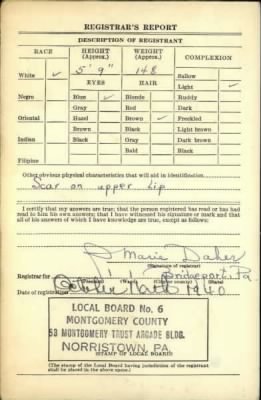 REGISTRAR'S REPORT
DESCRIPTION OF REGISTRANT
RACE HEIGHT (Approx.) WEIGHT (Approx.) COMPLEXION
5' 9" 148 Sallow
White ✓ EYES HAIR Light ✓
Negro Blue ✓ Blonde Ruddy
Gray Red Dark
Oriental Hazel Brown ✓ Freckled
Brown Black Light brown
Indian Black Gray Dark brown
Bald Black
Filipino
Other obvious physical characteristics that will aid in identification
Scar on upper lip
I certify that my answers are true; that the person registered has read or has had
read to him his own answers; that I have witnessed his signature or mark and that
all of his answers of which I have knowledge are true, except as follows:
Marie
(Signature of registrar)
Registrar for Bridgeport, Pa
(Precinct) (Ward) (City or county) (State)
Date of registration October 16th 1940
LOCAL BOARD No. 6
MONTGOMERY COUNTY
53 MONTGOMERY TRUST ARCADE BLDG.
NORRISTOWN, PA.
(STAMP OF LOCAL BOARD)
(The stamp of the Local Board having jurisdiction of the registrant
shall be placed in the above space.)